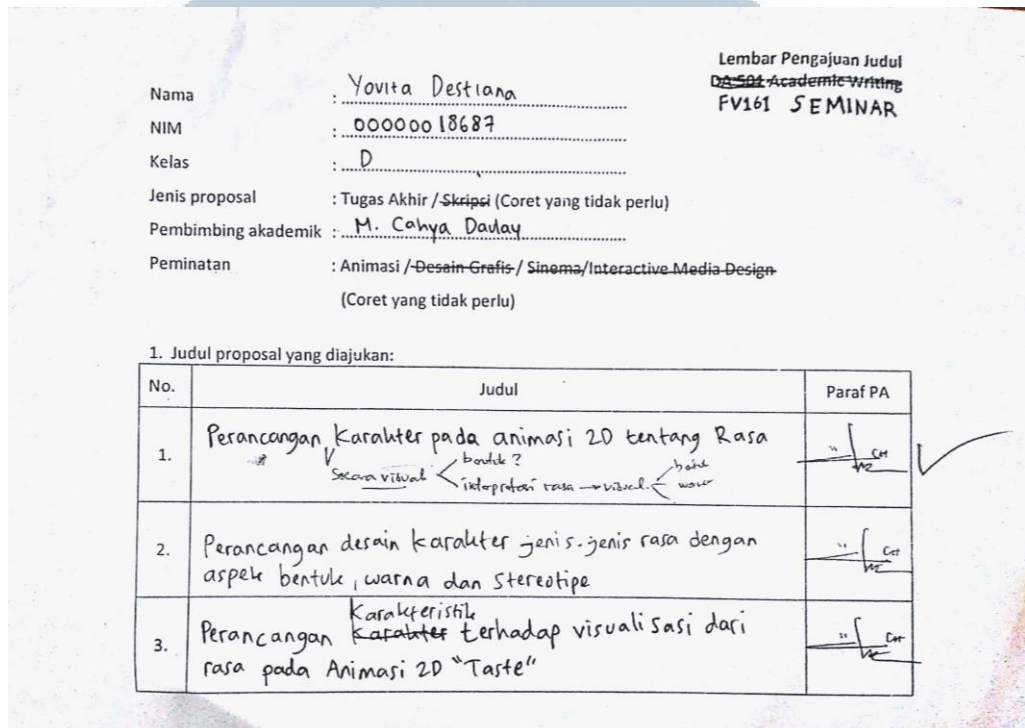 Lembar Pengajuan Judul
DA 501 Academic Writing
FV161 SEMINAR
Nama : Yovita Destiana
NIM : 00000018687
Kelas : D
Jenis proposal : Tugas Akhir / Skripsi (Coret yang tidak perlu)
Pembimbing akademik : M. Cahya Daulay
Peminatan : Animasi / Desain Grafis / Sinema/Interactive Media Design
(Coret yang tidak perlu)
1. Judul proposal yang diajukan:
No. Judul Paraf PA
1. Perancangan Karakter pada animasi 2D tentang Rasa
bentuk ?
Secara visual interpretasi rasa → visual
2. Perancangan desain karakter jenis-jenis rasa dengan
aspek bentuk, warna dan stereotipe
Karakteristik
3. Perancangan Karakter terhadap visualisasi dari
rasa pada Animasi 2D "Taste"